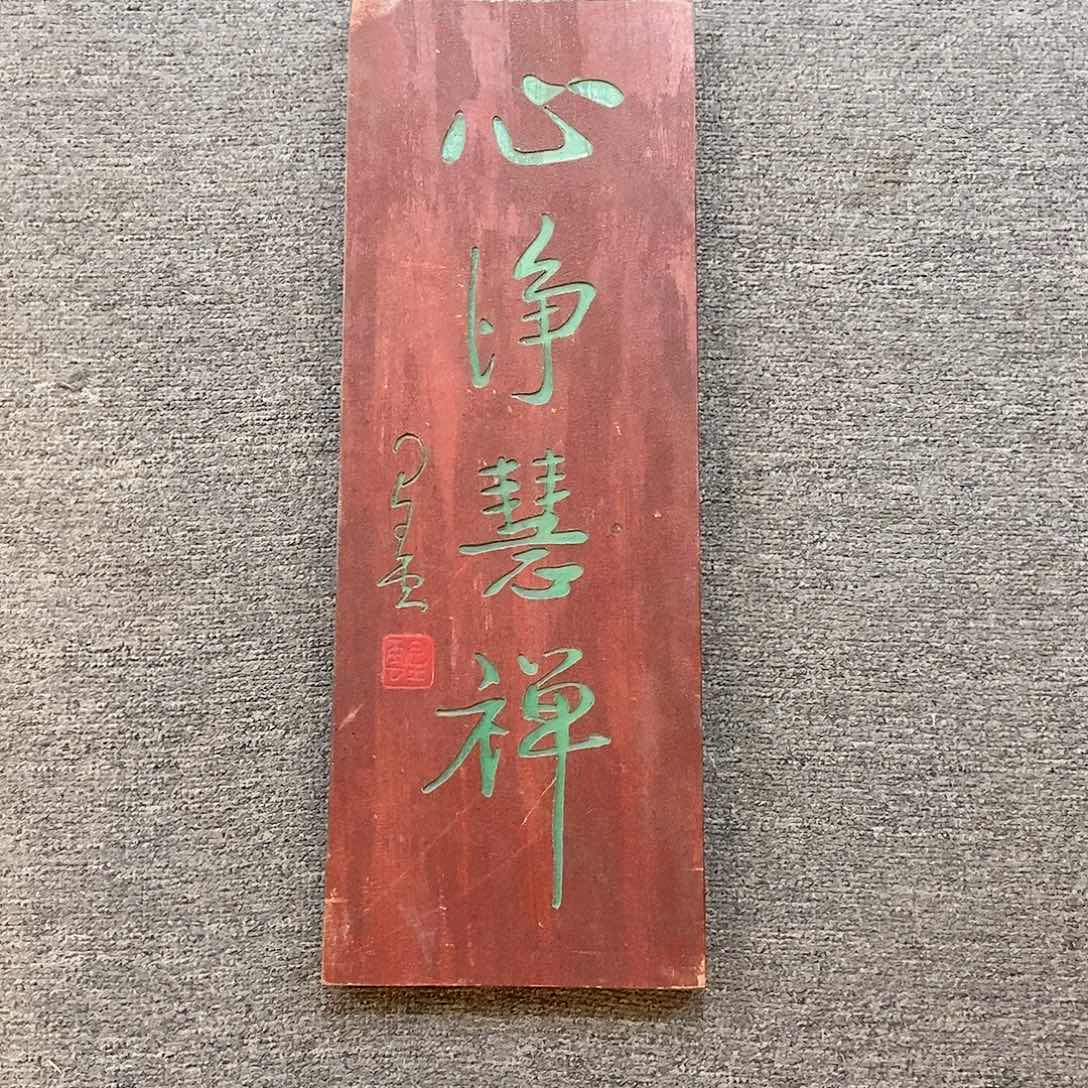 心净慧禅